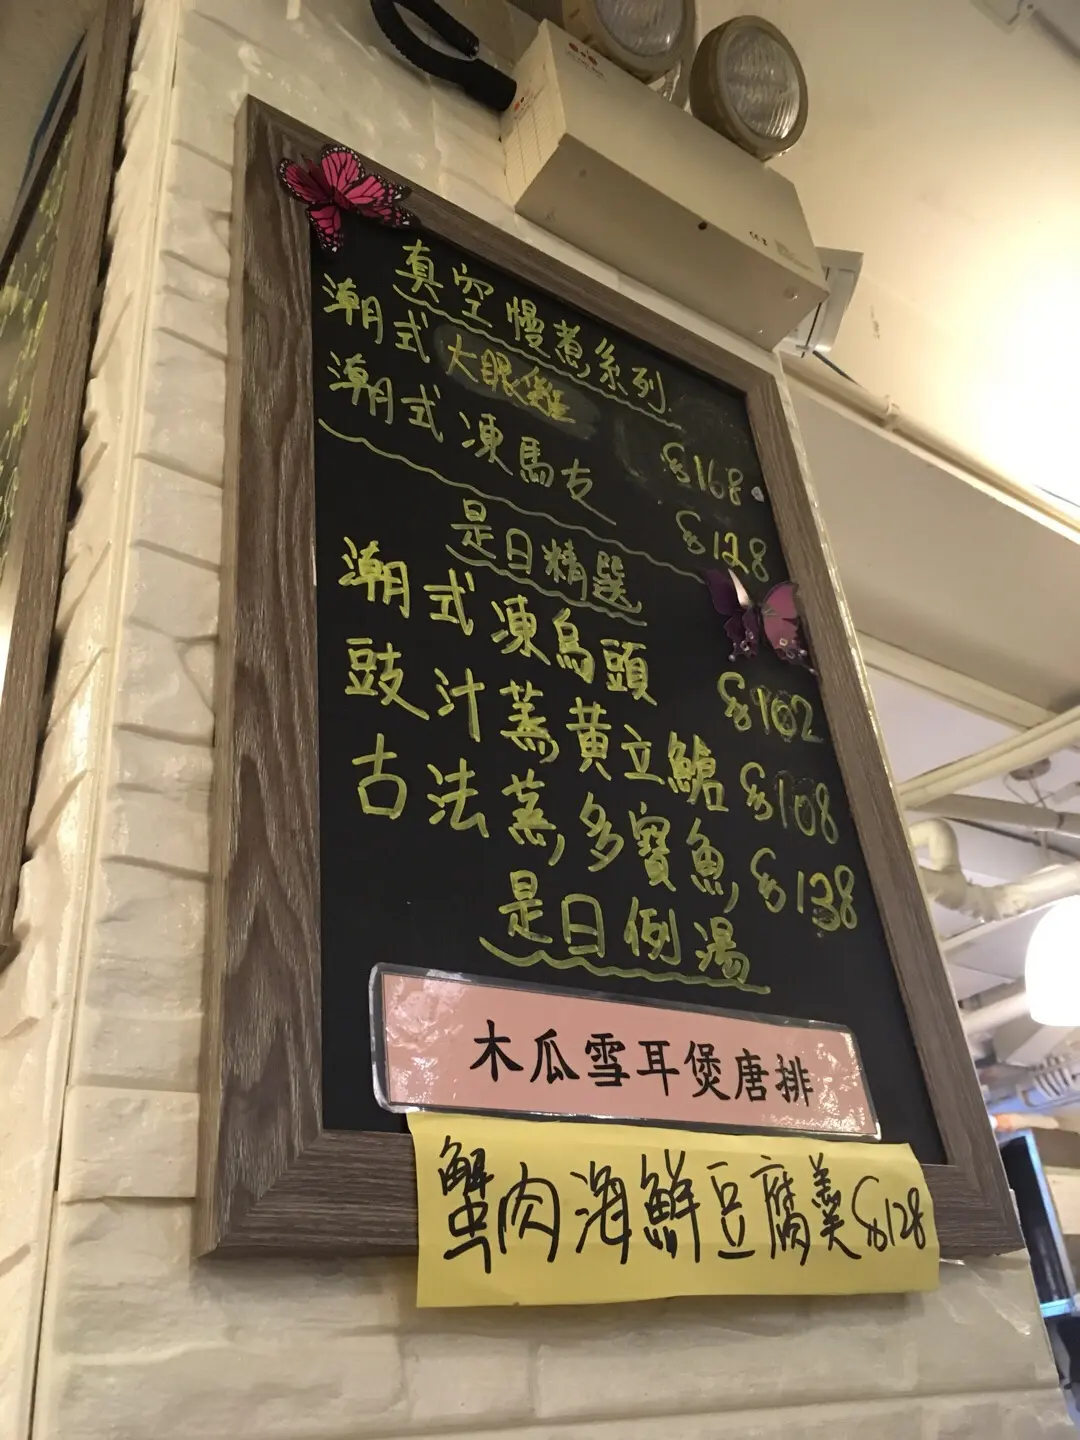 真空慢煮系列
潮式大眼雞 $168
潮式凍馬友 $128
是日精選
潮式凍烏頭 $102
豉汁蒸黃立鯧 $108
古法蒸多寶魚 $138
是日例湯
木瓜雪耳煲唐排
蟹肉海鮮豆腐羹 $128